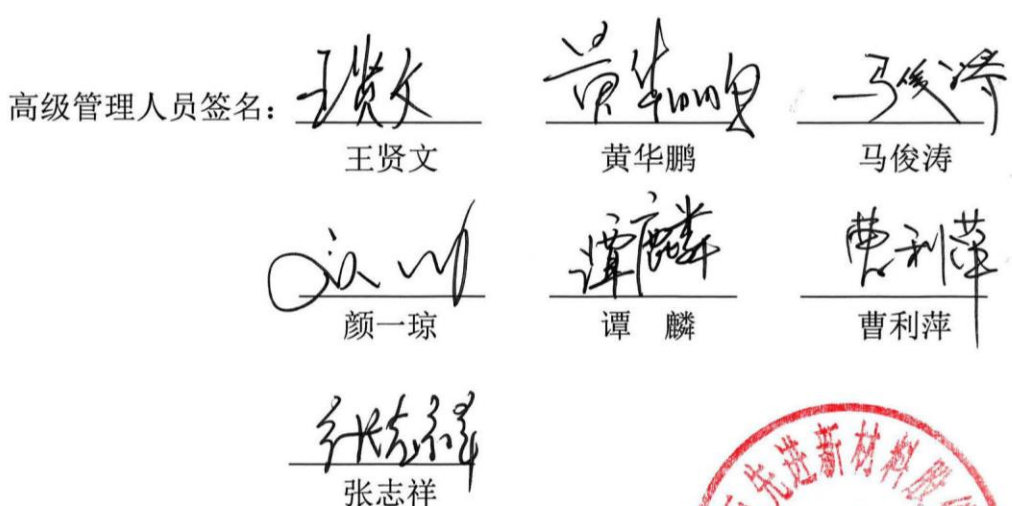 高级管理人员签名: 王贤文 黄华鹏 马俊涛
王贤文 黄华鹏 马俊涛
谭麟 曹利萍
颜一琼 谭 麟 曹利萍
张志祥
张志祥
先进新材料股